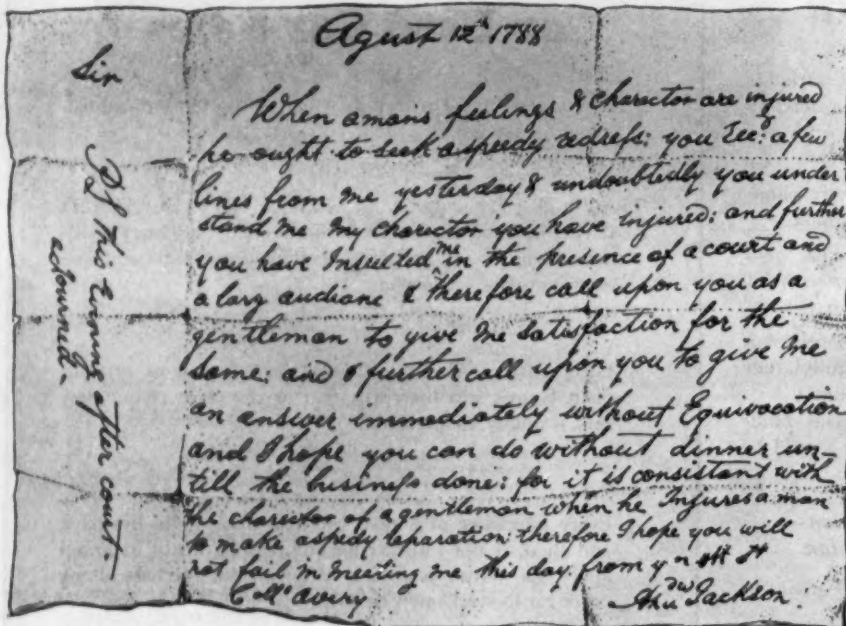 Agust 12th 1788
Sir
When amans feelings & charector are injured
he ought to seek aspeedy redress: you recd a few
lines from me yesterday & undoubtedly you under
stand me My charector you have injured: and further
you have Insulted me in the presence of a court and
a larg audiane I therefore call upon you as a
gentleman to give me satisfaction for the
Same: and I further call upon you to give Me
an answer immediately without Equivocation
and I hope you can do without dinner un-
till the business done: for it is consistant with
the charector of agentleman when he Injures aman
to make aspedy reparation: therefore I hope you will
not fail in meeting me this day. from yr Hl St
Coll Avery
Andw Jackson.
PS this Evening after court
adourned-